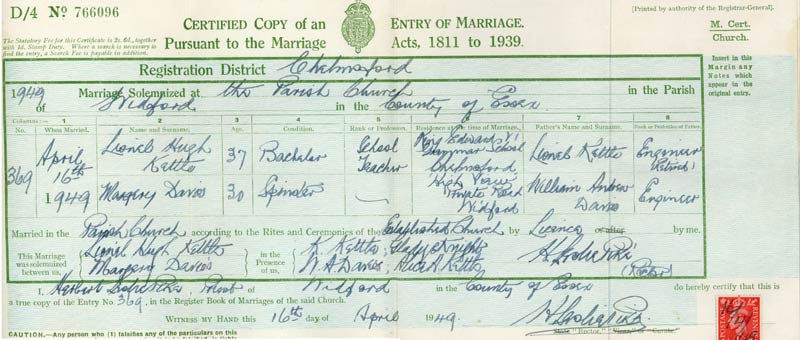 D/4 No 766096
CERTIFIED COPY of an ENTRY OF MARRIAGE.
Pursuant to the Marriage Acts, 1811 to 1939.
[Printed by authority of the Registrar-General.]
M. Cert.
Church.
The Statutory Fee for this Certificate is 2s. 6d., together
with 1d. Stamp Duty. Where a search is necessary to
find the entry, a Search Fee is payable in addition.
Insert in this
Margin any
Notes which
appear in the
original entry.
Registration District Chelmsford
1949 Marriage Solemnized at the Parish Church in the Parish
of Widford in the County of Essex
Columns:— 1 2 3 4 5 6 7 8
No. When Married. Name and Surname. Age. Condition. Rank or Profession. Residence at the time of Marriage. Father's Name and Surname. Rank or Profession of Father.
369 April 16th 1949
Lionel Hugh Kettle 37 Bachelor School Teacher King Edward VI Grammar School Chelmsford Lionel Kettle Engineer (Retired)
Margery Davies 30 Spinster High View Private Road Widford William Andrew Davies Engineer
Married in the Parish Church according to the Rites and Ceremonies of the Established Church by Licence or after by me.
This Marriage was solemnized between us, Lionel Hugh Kettle Margery Davies in the Presence of us, K. Kettle, Gladys Knight, W. A. Davies, Alice A. Kettle (Rector)
I, Herbert Leslie, of Widford in the County of Essex do hereby certify that this is
a true copy of the Entry No. 369, in the Register Book of Marriages of the said Church.
WITNESS MY HAND this 16th day of April 1949.
State "Rector, "Vicar," or "Curate.
CAUTION.—Any person who (1) falsifies any of the particulars on this